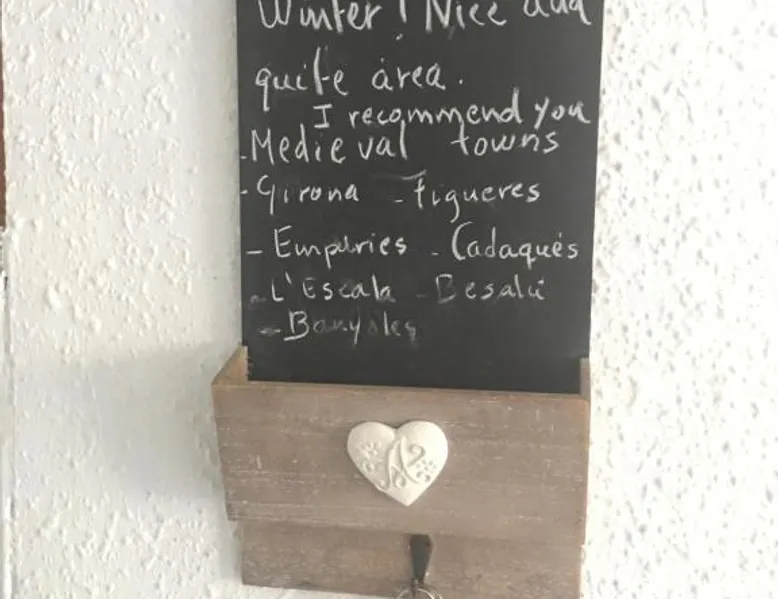 Winter! Nice and
quite area.
I recommend you
-Medieval towns
-Girona - Figueres
- Empúries - Cadaqués
- L'Escala - Besalú
- Banyoles